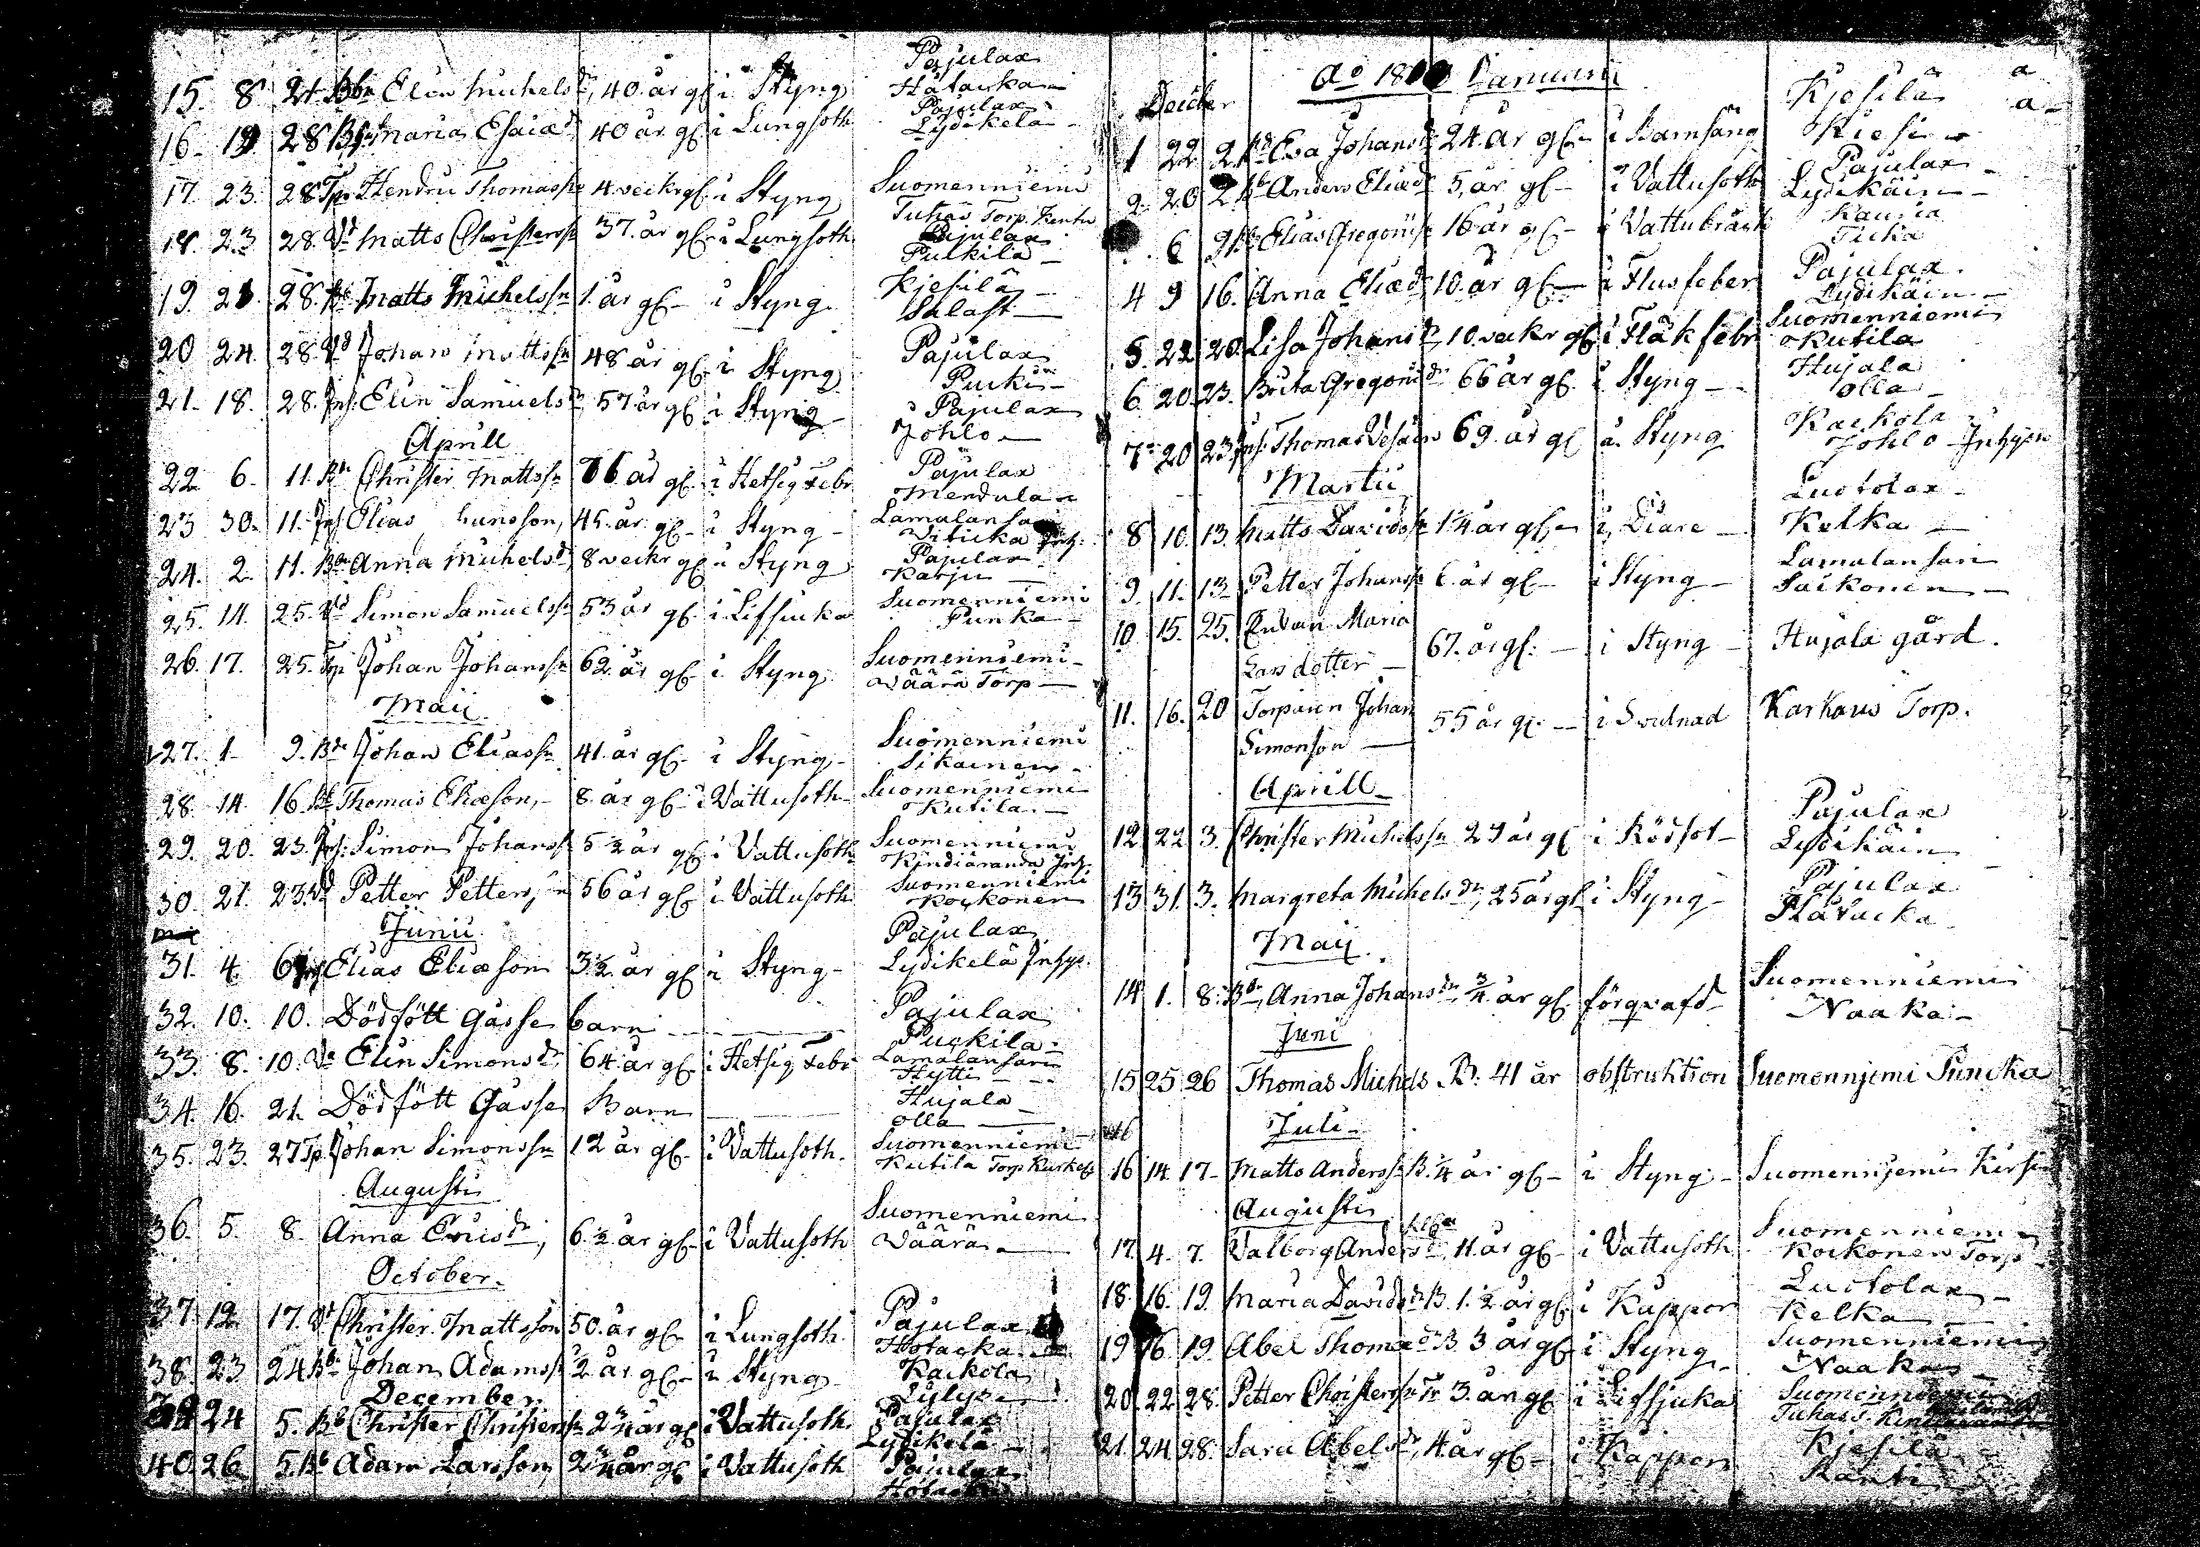 15. 8 24 Bbn Elin Michelsdr, 40. år gl. i Styng Pajulax Hätäcka
16. 19 28 Maria Esaiædr 40 år gl. i Lungsoth Pajulax Lydikelä
17. 23. 28 Tp. Hendric Thomassn 4 veckr gl. i Styng Suomenniemi Tuhas Torp
18. 23 28. Vd Matts Christerssn 37. år gl. i Lungsoth Pajulax Pulkila
19. 28. Bb Matts Michelssn 1. år gl. i Styng. Kjesilä Salast
20 24. 28. Vd Johan Mattssn 48 år gl. i Styng Pajulax Purki
21. 18. 28. Inh. Elin Samuelsdr 57 år gl. i Styng Pajulax Johlo
Aprill
22. 6. 11. Bb Christer Mattssn 76 år gl. i Hetsig Febr Pajulax Mendula
23 30. 11. Inh Elias 45. år gl. i Styng Lamalansari Inh.
24. 2. 11. Bb Anna Michelsdr, 8 veckr gl. i Styng Pajulax Karju
25. 14. 25. Vd Simon Samuelssn 53 år gl. i Lifsiucka Suomenniemi Punka
26. 17. 25. Tp Johan Johanssn 62. år gl. i Styng Suomenniemi Väärä Torp
Maij
27. 1. 9. Bb Johan Eliassn 41. år gl. i Styng Suomenniemi Sikainen
28. 14. 16. Bb Thomas Eliæson, 8. år gl. i Vattusoth Suomenniemi Kutila
29. 20. 23. Inh: Simon Johanss 5 ½ år gl. i Vattusoth Suomenniemi Kindiäranda Inh.
30. 21. 23. Vd Petter Petterssn 56 år gl. i Vattusoth Suomenniemi Kockonen
Junii
31. 4. 6 Inh Elias Eliæson 3½ år gl. i Styng Pajulax Lydikelä Inhys.
32. 10. 10. Dödfött Gosse barn Pajulax Purkila
33. 8. 10. Va Elin Simonsdr, 64. år gl. i Hetsig Febr Lamalansari Hytti
34. 16. 21. Dödfött Gosse Barn Hujala Olla
35. 23. 27 Tp. Johan Simonssn 12 år gl. i Vattusoth. Suomenniemi Kutila Torp
Augusti
36. 5. 8. Anna Ericsdr, 6 ½ år gl. i Vattusoth Suomenniemi Väärä
October.
37. 12. 17. Vd Christer Mattsson 50. år gl. i Lungsoth. Pajulax Hotacka
38. 23 24 Bb Johan Adamss 2 år gl. i Styng Kackola
December
39 24 5. Bb Christer Christerssn 2 ¾ år gl i Vattusoth Pajulax Lydikelä
40. 26 5. Bb Adam Larsson 2 ¾ år gl i Vattusoth Pajulax Hotacka
Ao 1800 Januarii
Decber
1 22 2 Bb Eva Johansdr 24 år gl. i Barnsäng Kjesilä
2. 20 2. Bb Anders Eliæ 5, år gl. i Vattusoth Pajulax Lydikäin
6 9 Bb Elias Gregoriisn 16 år gl. i Vattubråck Kauria Ticka
4 9 16. Anna Eliædr 10. år gl. i Flusfeber Pajulax. Lydikäin
5. 22 20. Lisa Johansdr 10. veckr gl. i Fläkfebr Suomenniemi Kutila
6. 20. 23. Brita Gregoriidr 66 år gl. i Styng Hujala Olla
7. 20 23. Inh. Thomas 69. år gl i Styng Kackola Johlo Inhyse
Martii
8 10. 13. Matts Davidssn 1 ¼ år gl. i Diare Luotolax Kelka
9. 11. 13 Petter Johanssn 6. år gl. i Styng Lamalansari Saikonen
10. 15. 25. Enkan Maria Larsdotter 67. år gl: i Styng Hujala gård.
11. 16. 20 Torparen Johan Simonson 55 år gl. i Svulnad Karhaus Torp.
Aprill
12 22 3. Christer Michelssn 29 år gl i Rödsot Pajulax Lydikäin
13 31. 3. Margreta Michelsdr, 25 år gl i Styng Pajulax Hätäcka
Maij
14 1. 8. Bb, Anna Johansdr ¾ år gl. förqvafd Suomenniemi Naaka
Juni
15 25 26 Thomas Michels B: 41 år obstruktion Suomennjemi Puncka
16 Juli
16 14 17 Matts Anderss B. ¼ år gl. i Styng Suomennjemi Kirsi
Augusti
17. 4. 7. Valborg Andersdr, 11. år gl. i Vattusoth Suomenniemi Kockonen Torp
18. 16. 19. Maria Davidsdr B. 1. ½ år gl. i Kuppor Luotolax Kelka
19 16 19 Abel Thomædr B. 3 år gl. i Styng Suomenniemi Naaka
20. 22. 28. Petter Christerssn Tr 3. år gl. i Lifsjuka Suomenniemi
21. 24 28. Sara Abelsdr, 4 år gl. i Koppor Kjesilä Ranti